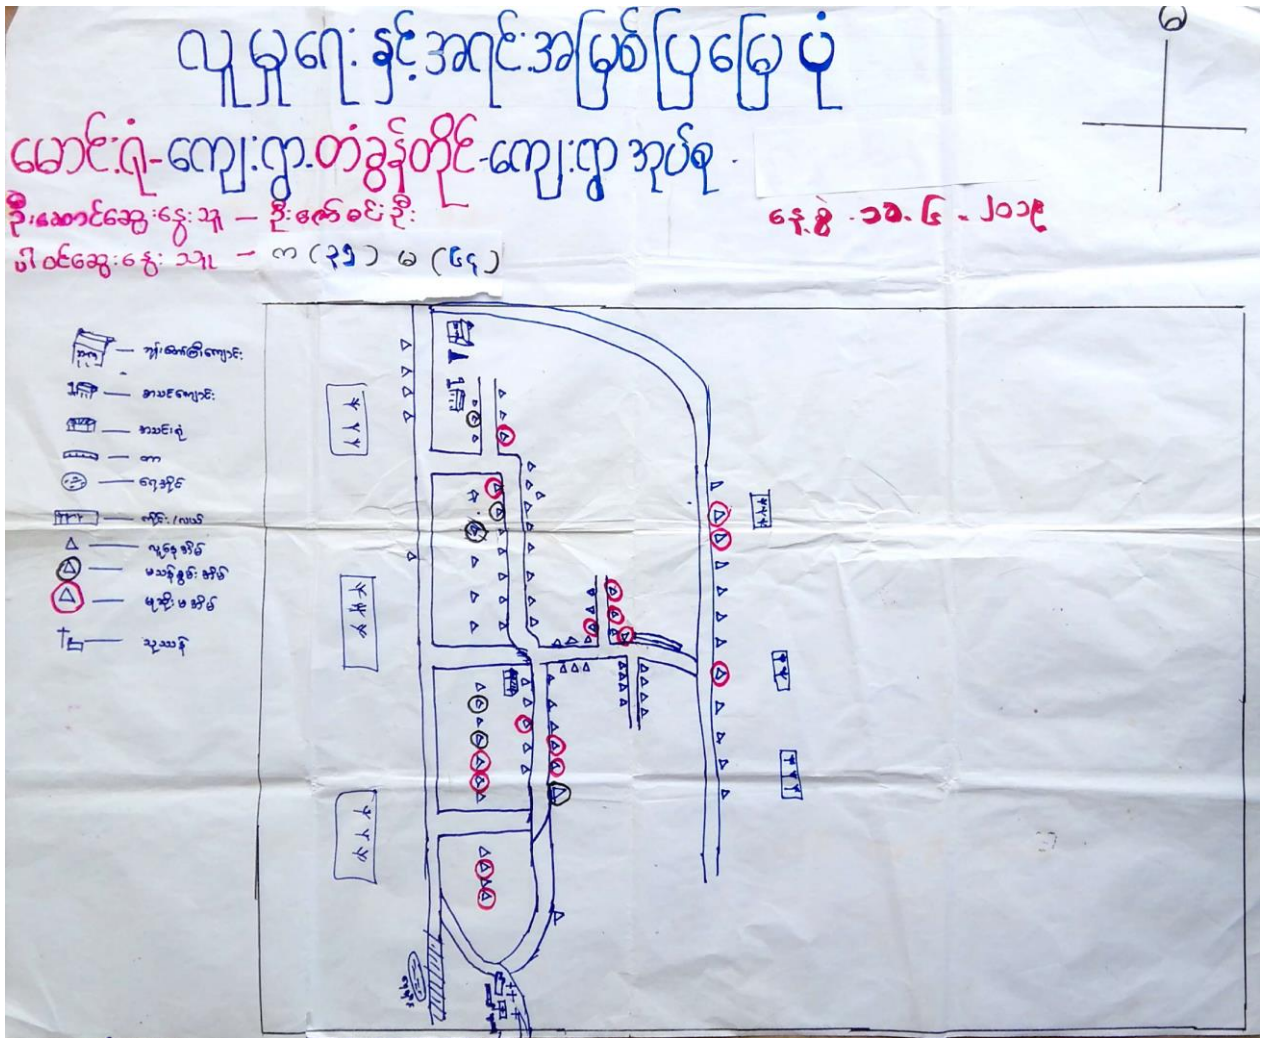 မ
လူမှုရေးနှင့်အရင်းအမြစ်ပြမြေပုံ
မောင်းရုံ-ကျေးရွာ.တံခွန်တိုင်-ကျေးရွာအုပ်စု.
ဦးဆောင်ဆွေးနွေးသူ – ဦးဇော်ဝင်းဦး
နေ့စွဲ
၂၀၁၉
ပါဝင်ဆွေးနွေးသူ – က (၃၅) မ (၆၄)
ဘုန်းတော်ကြီးကျောင်း
စာသင်ကျောင်း
တာ
ရေအိုင်
ကိုင်း/လယ်
လူနေအိမ်
မသန်စွမ်းအိမ်
မုဆိုးမအိမ်
သုဿန်